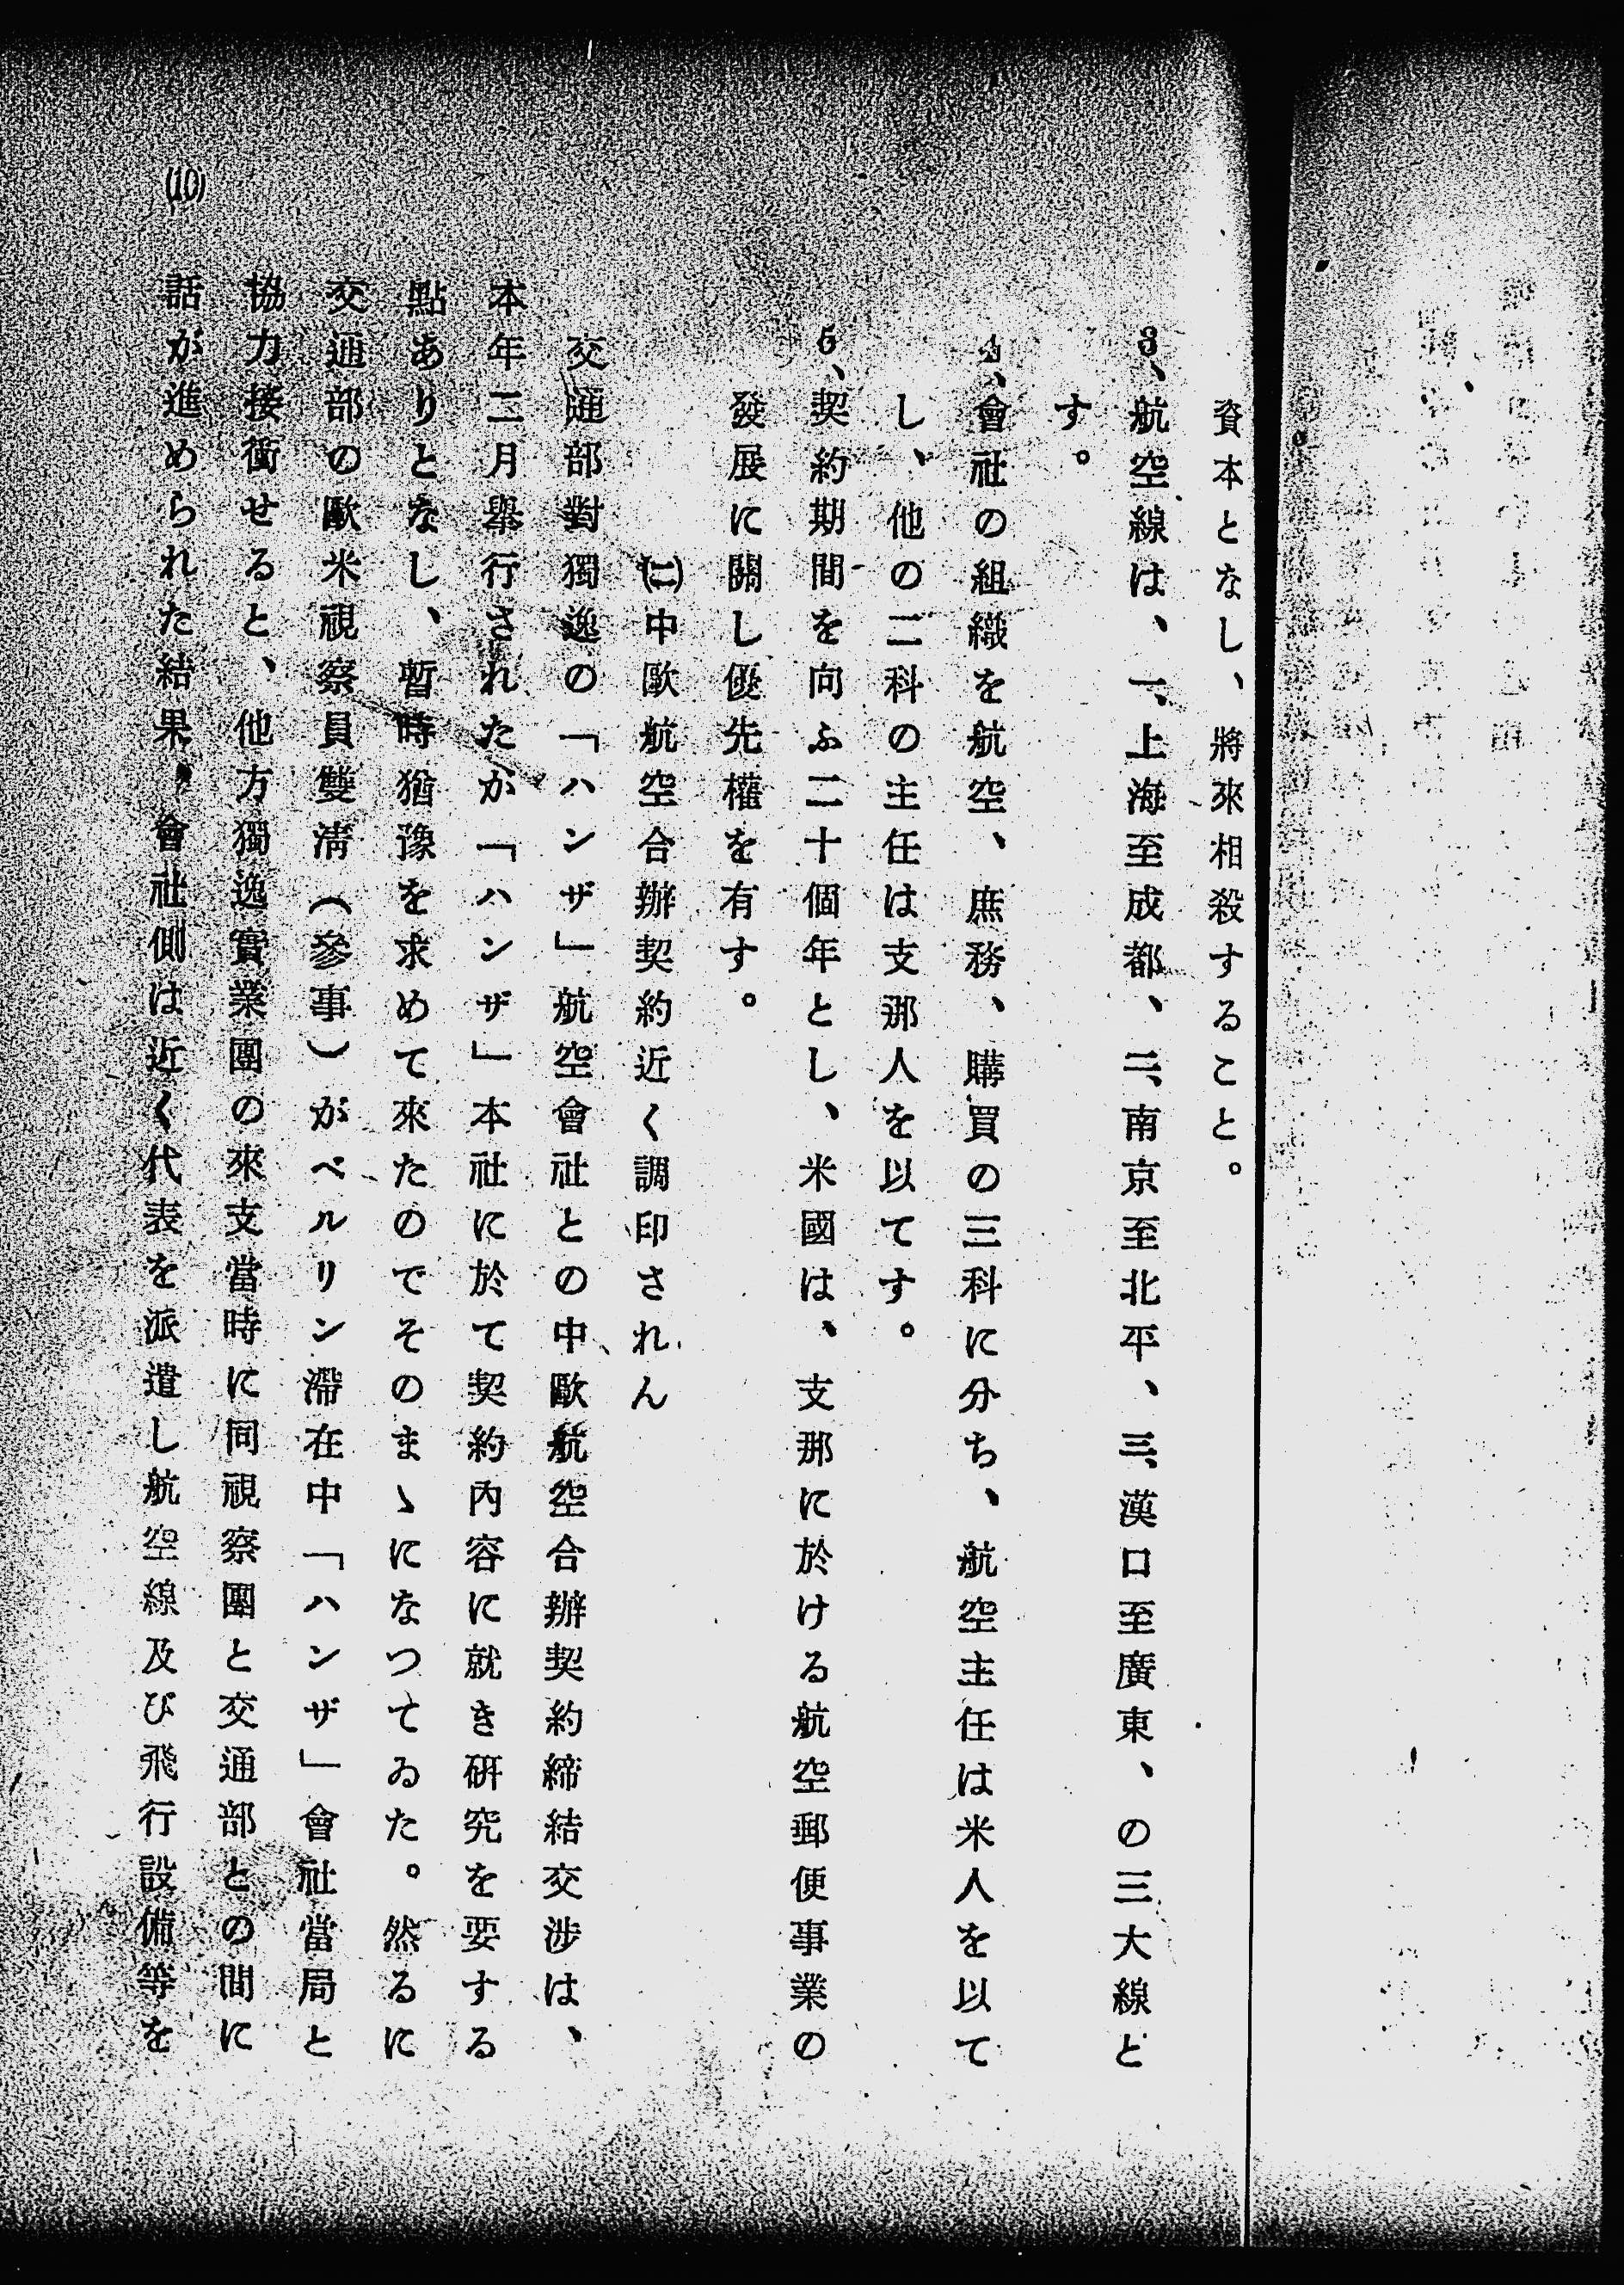 資本となし、將來相殺すること。
3、航空線は、一、上海至成都、二、南京至北平、三、漢口至廣東、の三大線と
す。
4、會社の組織を航空、庶務、購買の三科に分ち、航空主任は米人を以て
し、他の二科の主任は支那人を以てす。
5、契約期間を向ふ二十個年とし、米國は、支那に於ける航空郵便事業の
發展に關し優先權を有す。
㈡中歐航空合辦契約近く調印されん
交通部對獨逸の「ハンザ」航空會社との中歐航空合辦契約締結交渉は、
本年二月擧行されたが「ハンザ」本社に於て契約內容に就き硏究を要する
點ありとなし、暫時猶豫を求めて來たのでそのまゝになつてゐた。然るに
交通部の歐米視察員雙淸(參事)がベルリン滯在中「ハンザ」會社當局と
協力接衝せると、他方獨逸實業團の來支當時に同視察團と交通部との間に
話が進められた結果、會社側は近く代表を派遣し航空線及び飛行設備等を
(10)